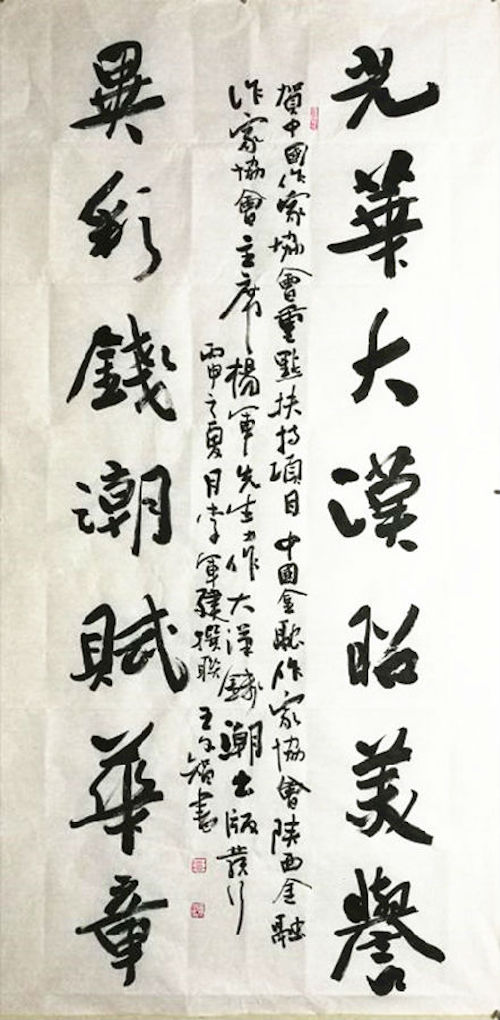 光華大漠昭美譽
賀中國作家協會重點扶持項目中國金融作家協會陝西金融
作家協會主席楊軍先生力作大漠錢潮出版發行
丙申之夏月李軍建撰聯王書
異彩錢潮賦華章